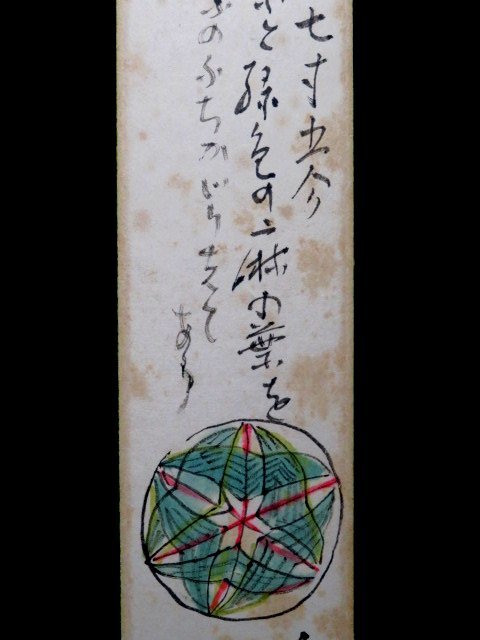 七寸五分
と緑色の二麻の葉を
のふちかがりさして
あり